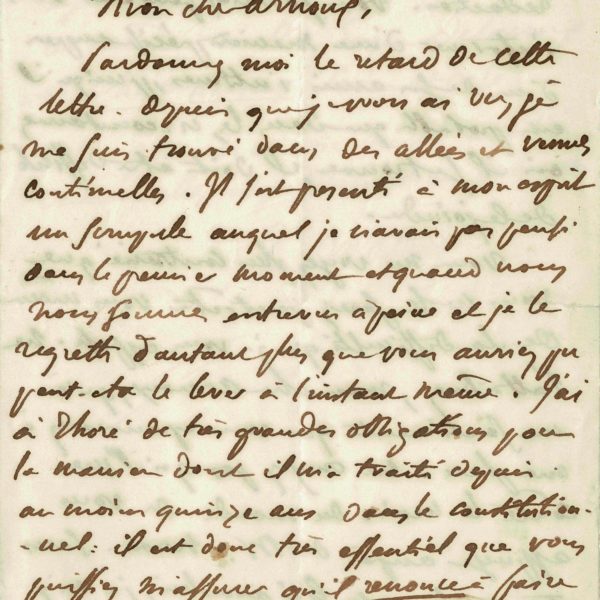 Mon cher Arnoux,
Pardonnez moi le retard de cette
lettre. depuis que je vous ai vu, je
me suis trouvé dans des allées et venues
continuelles. Il s'est présenté à mon esprit
un scrupule auquel je n'avais pas pensé
dans le premier moment et quand nous
nous sommes entrevus à peine et je le
regrette d'autant plus que vous auriez pu
peut-etre le lever à l'instant même. J'ai
à Thoré de très grandes obligations pour
la maniere dont il m'a traité depuis
au moins quinze ans dans le constitution-
-nel: il est donc très essentiel que vous
puissiez m'assurer qu'il renonce à faire